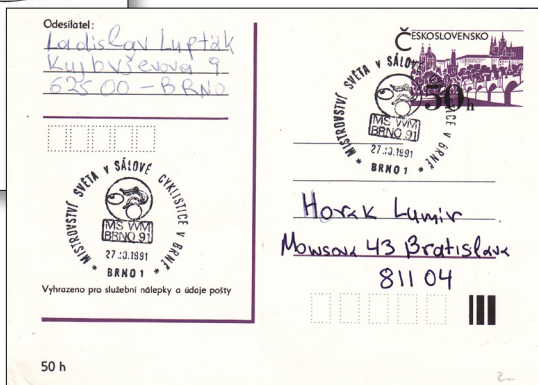 Odesílatel:
Ladislav Lupták
Kujbyševova 9
625 00 - BRNO
MISTROVSTVÍ SVĚTA V SÁLOVÉ CYKLISTICE V BRNĚ
MS WM
BRNO 91
27.10.1991
* BRNO 1 *
Vyhrazeno pro služební nálepky a údaje pošty
50 h
ČESKOSLOVENSKO
50h
MISTROVSTVÍ SVĚTA V SÁLOVÉ CYKLISTICE V BRNĚ
MS WM
BRNO 91
27.10.1991
* BRNO 1 *
Horak Lumir
43 Bratislava
811 04